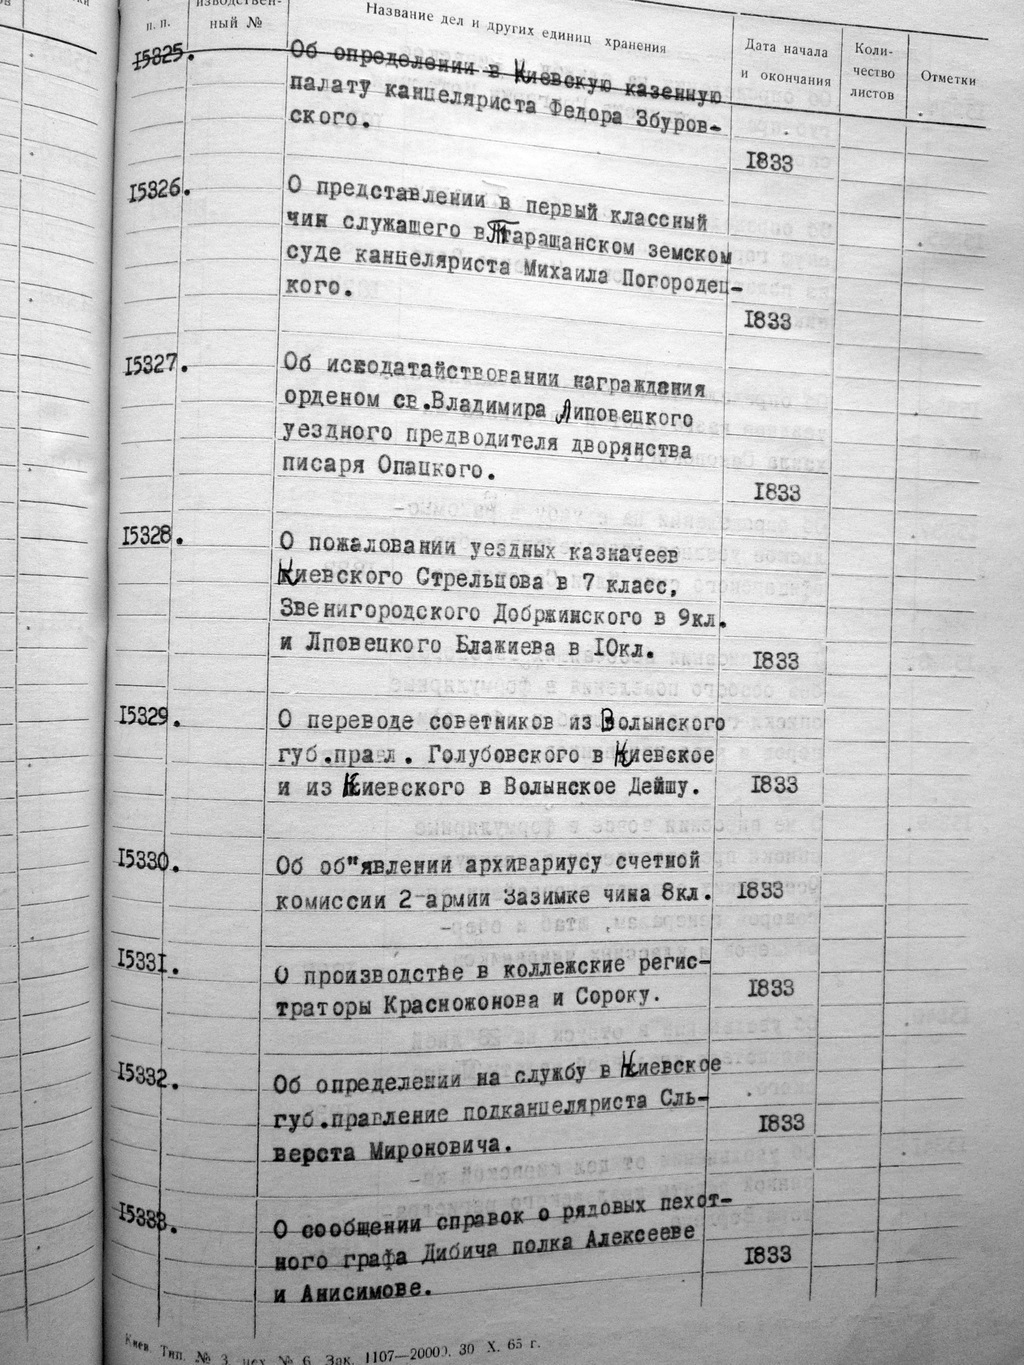 п. п.
ный №
Название дел и других единиц хранения
Дата начала
и окончания
Коли-
чество
листов
Отметки
15325.
Об определении в Киевскую казенную
палату канцеляриста Федора Збуров-
ского.
1833
15326.
О представлении в первый классный
чин служащего в Таращанском земском
суде канцеляриста Михаила Погородец-
кого.
1833
15327.
Об исходатайствовании награждения
орденом св.Владимира Липовецкого
уездного предводителя дворянства
писаря Опацкого.
1833
15328.
О пожаловании уездных казначеев
Киевского Стрельцова в 7 класс,
Звенигородского Добржинского в 9кл.
и Лповецкого Блажиева в 10кл.
1833
15329.
О переводе советников из Волынского
губ.правл. Голубовского в Киевское
и из Киевского в Волынское Дейшу.
1833
15330.
Об об"явлении архивариусу счетной
комиссии 2-армии Зазимке чина 8кл.
1833
15331.
О производстве в коллежские регис-
траторы Красножонова и Сороку.
1833
15332.
Об определении на службу в Киевское
губ.правление подканцеляриста Сль-
верста Мироновича.
1833
15333.
О сообщении справок о рядовых пехот-
ного графа Дибича полка Алексееве
и Анисимове.
1833
Киев. Тип. № 3, цех № 6. Зак. 1107—20000. 30 X. 65 г.